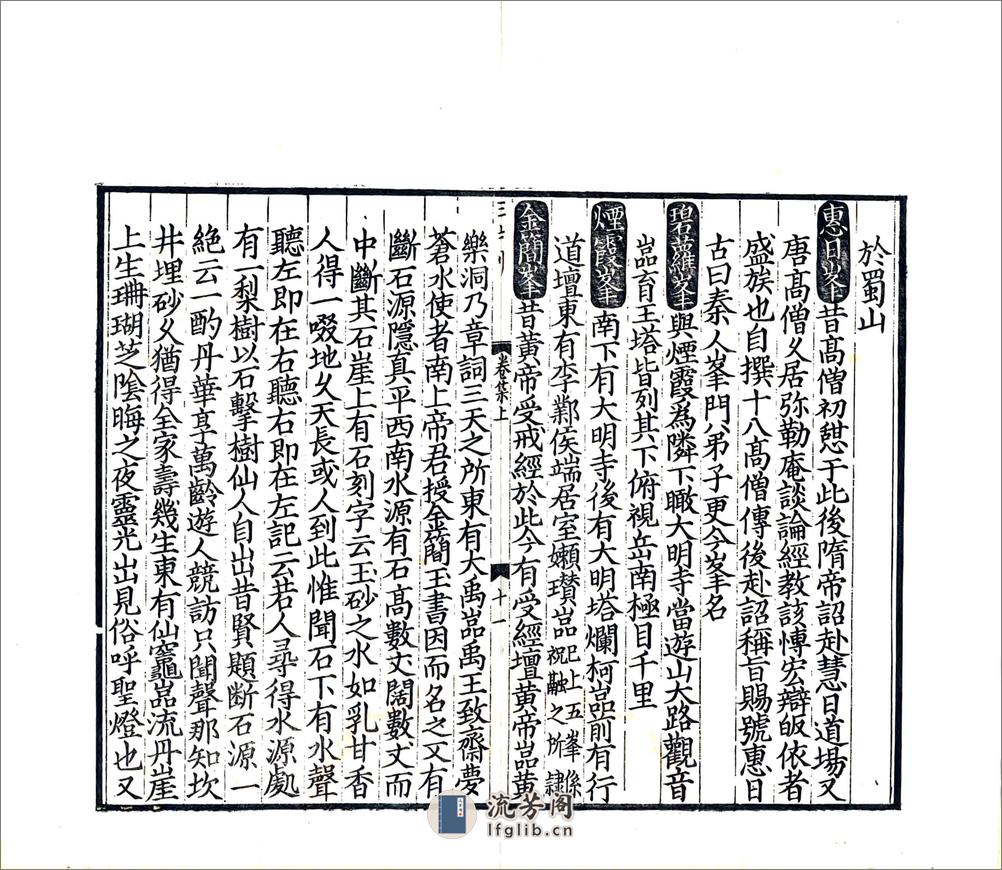 於蜀山
惠日峯昔髙僧初愻于此後隋帝詔赴慧日道塲又
唐髙僧乆居弥勒庵談論經教該愽宏辯皈依者
盛族也自撰十八髙僧傳後赴詔稱旨賜號惠日
古曰秦人峯門人弟子更今峯名
碧蘿峯與煙霞為隣下瞰大明寺當遊山大路觀音
嵓育王塔皆列其下俯視岳南極目千里
煙霞峯南下有大明寺後有大明塔爛柯嵓前有行
道壇東有李鄴侯端居室嬾瓉嵓祝融之所隸巳上五峯係
金簡峯昔黄帝受戒經於此今有受經壇黄帝嵓黄
卷集上
十一
樂洞乃章詞三天之所東有大禹嵓禹王致齋夢
蒼水使者南上帝君授金簡玉書因而名之又有
斷石源隱真平西南水源有石髙數丈闊數丈而
中斷其石崖上有石刻字云玉砂之水如乳甘香
人得一啜地乆天長或人到此惟聞石下有水聲
聽左即在右聽右即在左記云若人尋得水源處
有一梨樹以石擊樹仙人自出昔賢題断石源一
絶云一酌丹華亭萬齡遊人競訪只聞聲那知坎
井埋砂乆猶得全家壽幾生東有仙竈嵓流丹崖
上生珊瑚芝隂晦之夜靈光出見俗呼聖燈也又
流芳阁
lfglib.cn